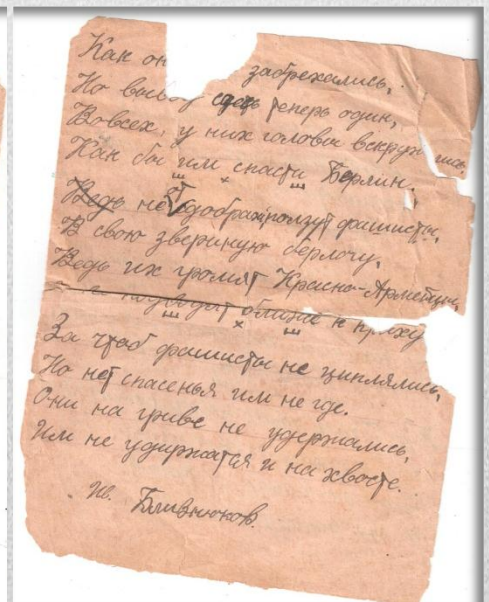 Как он забрехались,
Но вывод здесь теперь один,
Вовсех, у них головы вскружились
Как бы им спасти Берлин.
Ведь не добра ползут фашисты,
В свою звериную берлогу,
Ведь их громят Красно-Армейцы,
подводят ближе к краху
За чтоб фашисты не циплялись,
Но нет спасенья им не где.
Они на гриве не удержались,
Им не удержатся и на хвосте.
Ив. Близнюков.